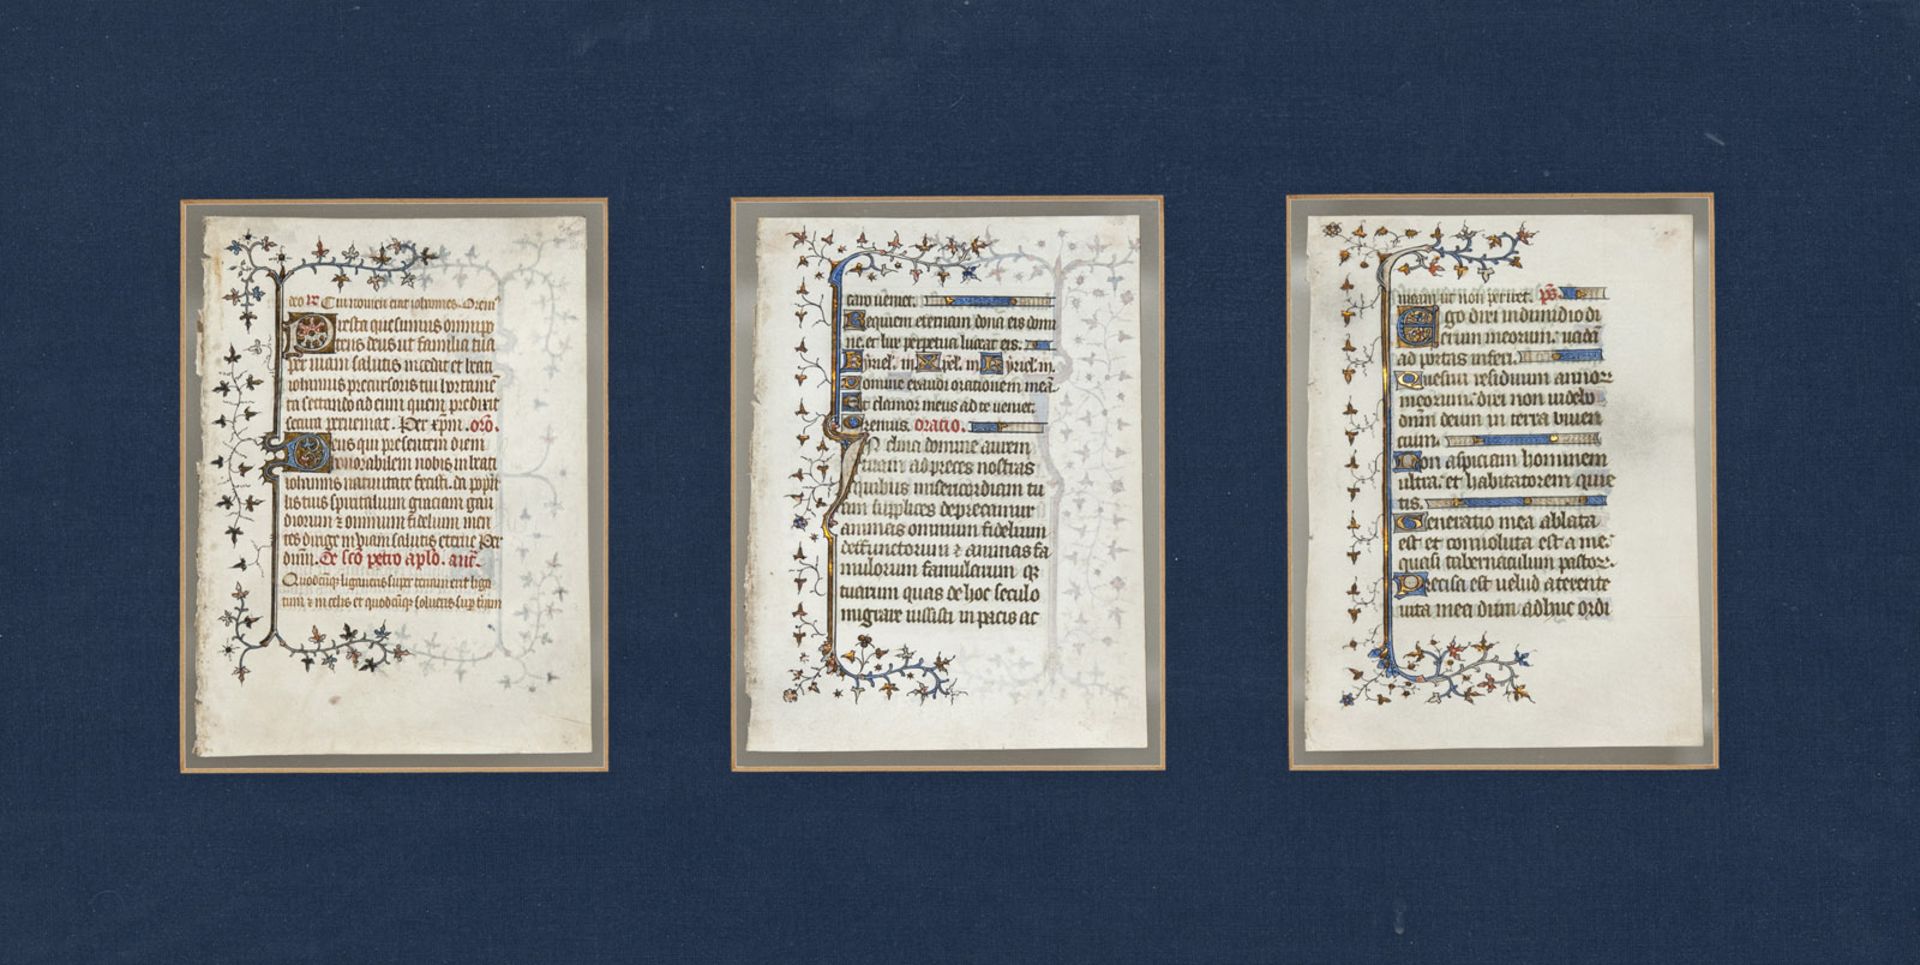 deo ℞ Cui nomen erat iohannes. Orem⁹
Presta quesumus omnip̄o
tens deus ut familia tua
per uiam salutis incedat et beati
iohannis precursoris tui hortamē
ta sectando ad eum quem predixit
secura perueniat. Per xp̄m. orō.
Deus qui presentem diem
honorabilem nobis in beati
iohannis natiuitate fecisti. da pop̄li
bis tuis spiritalium graciam gau
diorum ⁊ omnium fidelium men
tes dirige in uiam salutis eterne Per
dn̄m. De sc̄o petro ap̄lo. an̄t.
Quodcūq; ligaueris super terram erit liga
tum. ⁊ in celis et quodcūq; solueris sup̄ terram
caro ueniet.
Requiem eternam dona eis domi
ne. et lux perpetua luceat eis.
Kyriel. m. Xp̄el. m. Kyriel. m.
Domine exaudi orationem meā.
Et clamor meus ad te ueniet.
Oremus. oratio.
Inclina domine aurem
tuam ad preces nostras
quibus misericordiam tu
am supplices deprecamur
animas omnium fidelium
deffunctorum ⁊ animas fa
mulorum famularum q;
tuarum quas de hoc seculo
migrare iussisti in pacis ac
niam ut non periret. p̄s.
Ego dixi in dimidio di
erum meorum. uadā
ad portas inferi.
Quesiui residuum annoꝝ
meorum. dixi non uidebo
dn̄m deum in terra uiuen
cium.
Non aspiciam hominem
ultra. et habitatorem quie
tis.
Generatio mea ablata
est et conuoluta est a me.
quasi tabernaculum pastoꝝ.
Precisa est uelud a texente
uita mea dum adhuc ordi